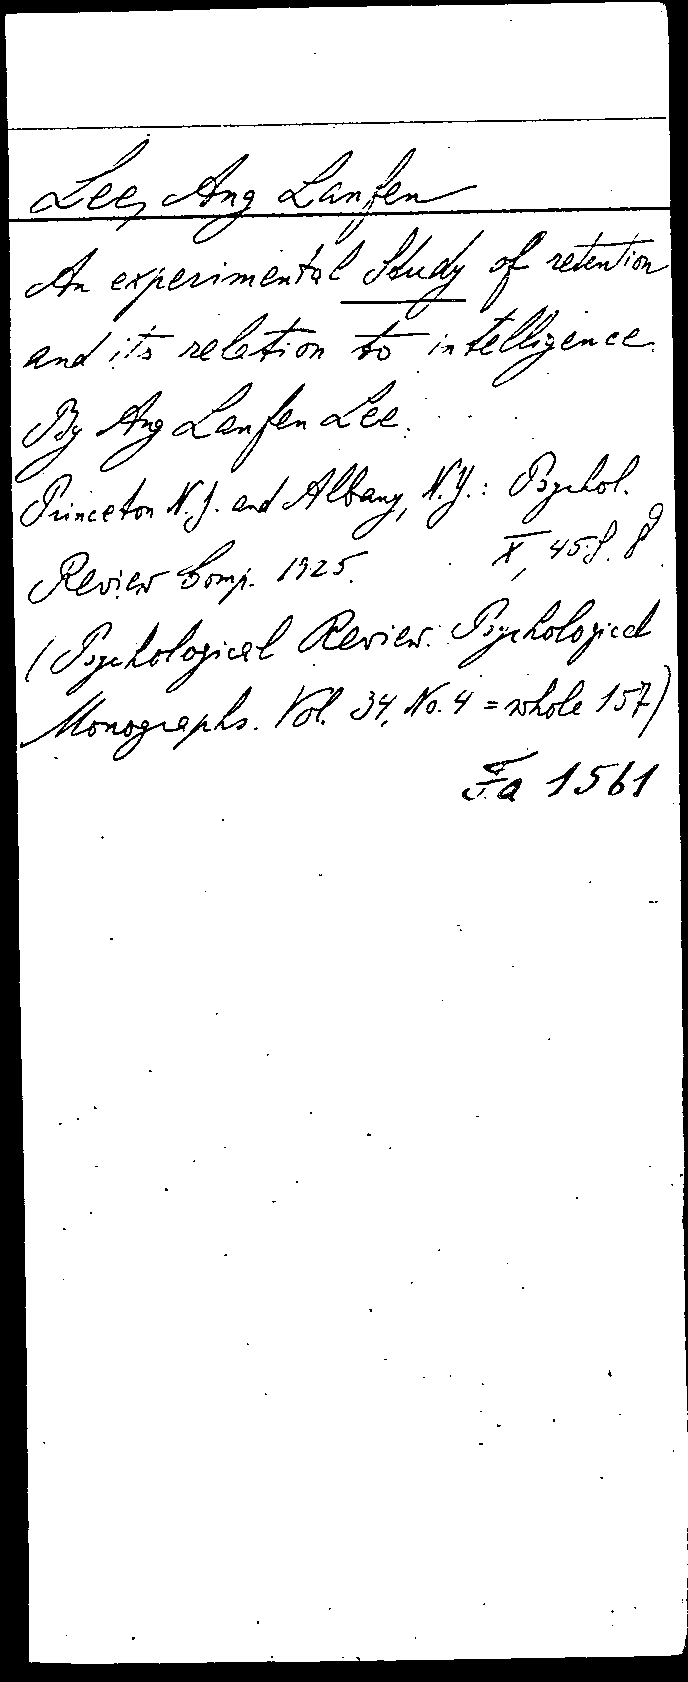 Lee, Ang Lanfen
An experimental Study of retention
and its relation to intelligence.
By Ang Lanfen Lee.
Princeton N.J. and Albany, N.Y.: Psychol.
Review Comp. 1925. X, 45 S. 8°
(Psychological Review. Psychological
Monographs. Vol. 34, No. 4 = whole 157)
Fa 1561